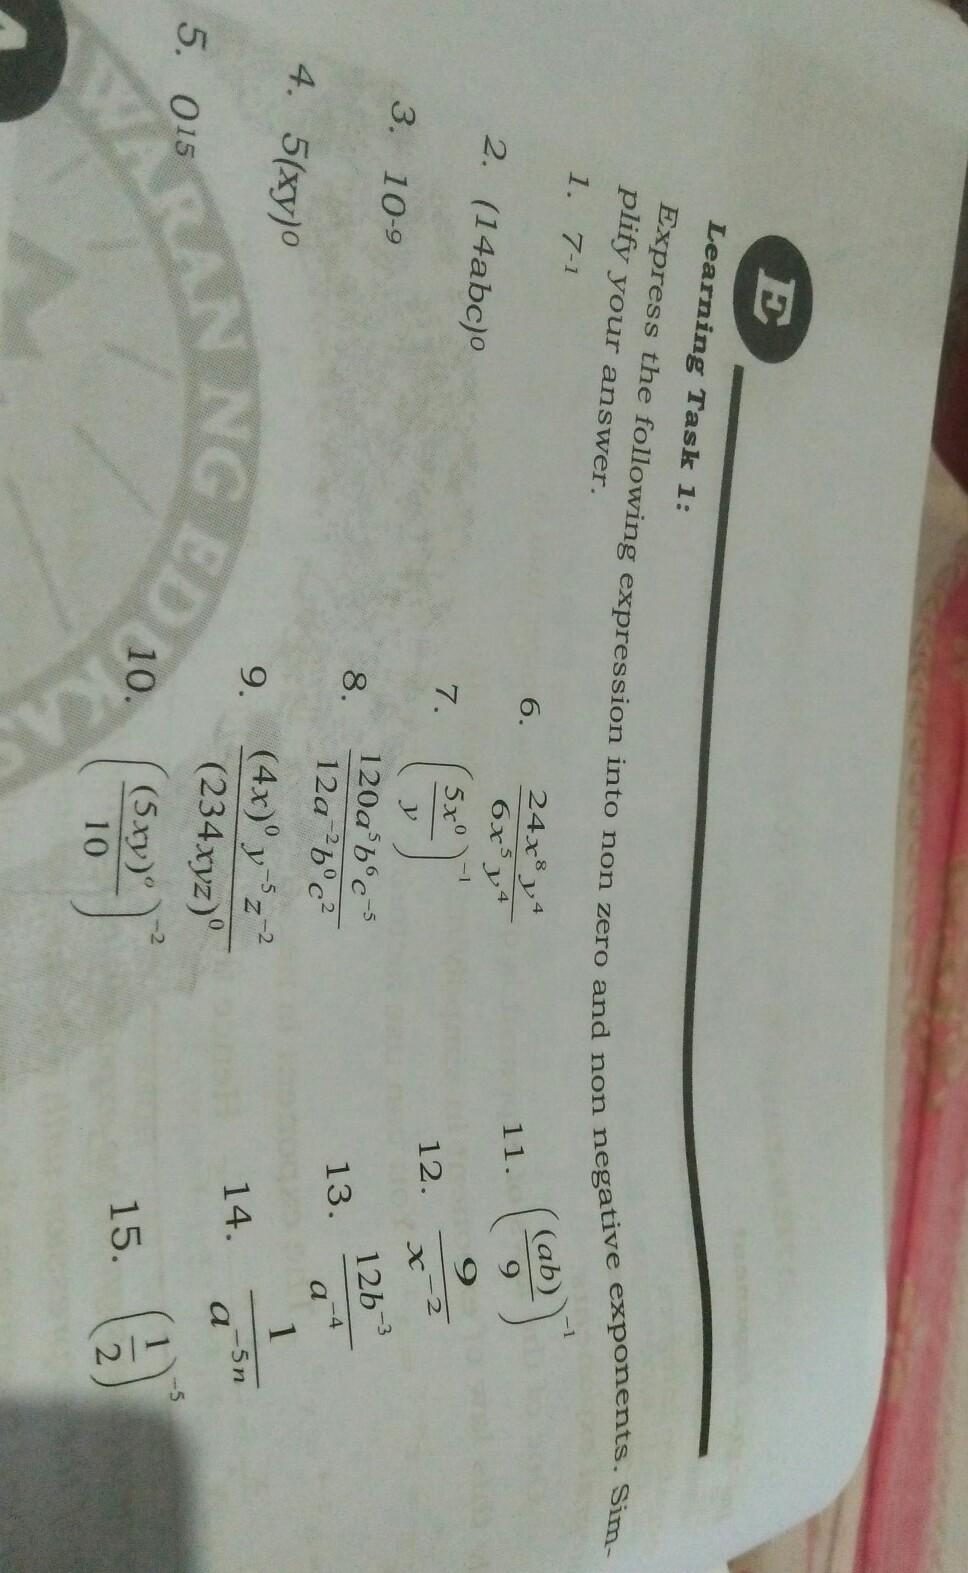 E
Learning Task 1:
Express the following expression into non zero and non negative exponents. Sim-
plify your answer.
1. 7⁻¹
2. (14abc)⁰
3. 10⁻⁹
4. 5(xy)⁰
5. 0¹⁵
6. 24x⁸y⁴ / 6x⁵y⁴
7. (5x⁰ / y)⁻¹
8. 120a⁵b⁶c⁻⁵ / 12a⁻²b⁰c²
9. (4x)⁰y⁻⁵z⁻² / (234xyz)⁰
10. ((5xy)⁰ / 10)⁻²
11. ((ab) / 9)⁻¹
12. 9 / x⁻²
13. 12b⁻³ / a⁻⁴
14. 1 / a⁻⁵ⁿ
15. (1 / 2)⁻⁵
WARANG EDUKAS
A